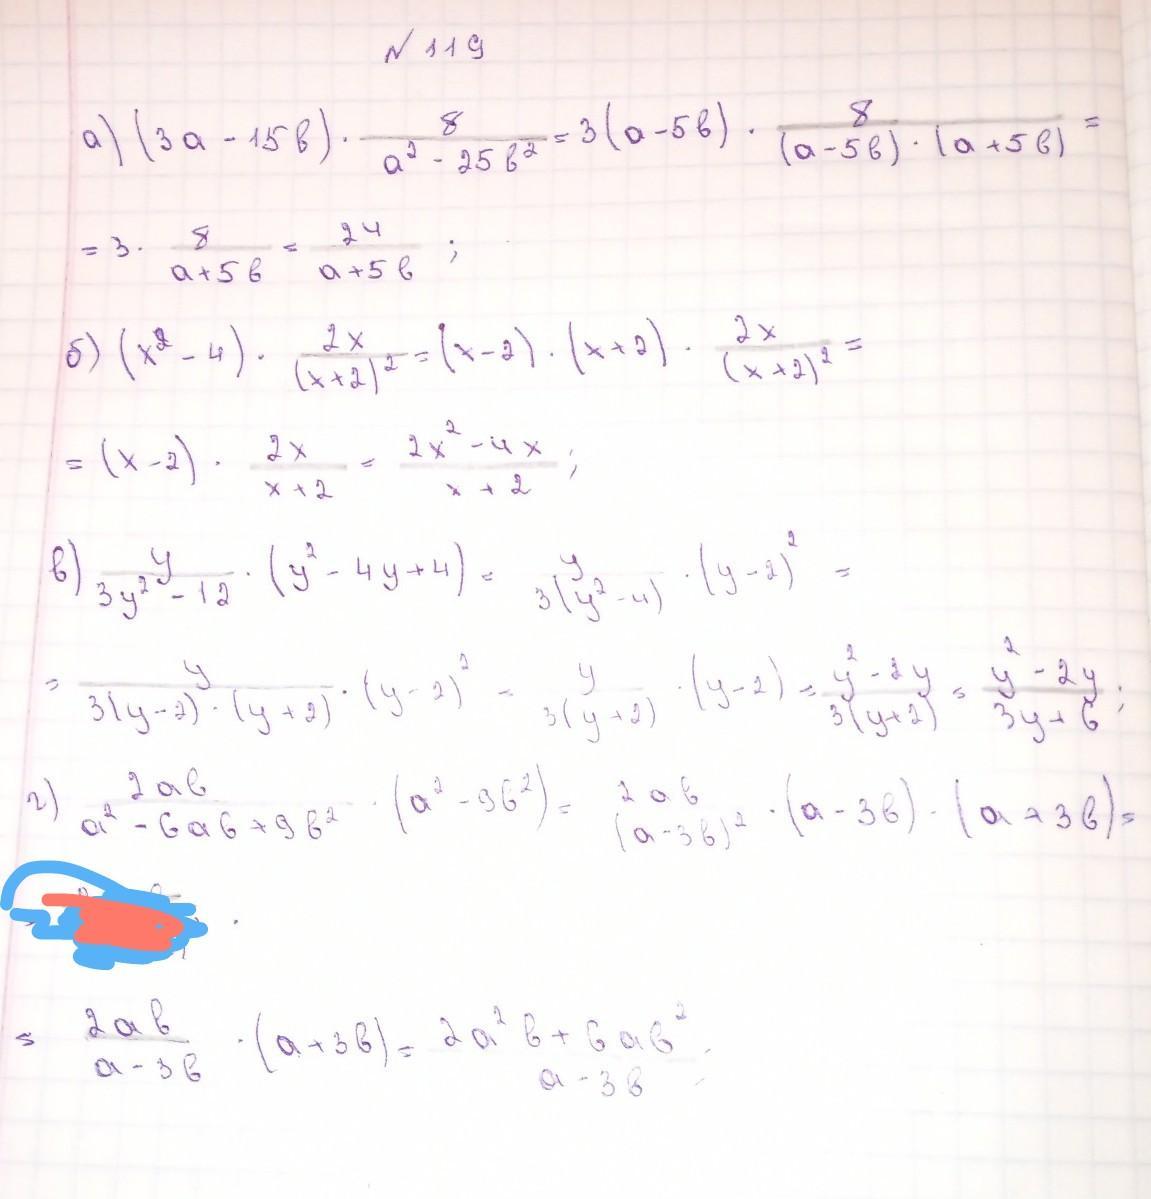 № 119
а) (3a - 15b) · 8/(a² - 25b²) = 3(a - 5b) · 8/((a - 5b) · (a + 5b)) =
= 3 · 8/(a + 5b) = 24/(a + 5b) ;
б) (x² - 4) · 2x/(x + 2)² = (x - 2) · (x + 2) · 2x/(x + 2)² =
= (x - 2) · 2x/(x + 2) = (2x² - 4x)/(x + 2) ;
в) y/(3y² - 12) · (y² - 4y + 4) = y/(3(y² - 4)) · (y - 2)² =
= y/(3(y - 2) · (y + 2)) · (y - 2)² = y/(3(y + 2)) · (y - 2) = (y² - 2y)/(3(y + 2)) = (y² - 2y)/(3y + 6) ;
г) 2ab/(a² - 6ab + 9b²) · (a² - 9b²) = 2ab/(a - 3b)² · (a - 3b) · (a + 3b) =
= 2ab/(a - 3b) · (a + 3b) = (2a²b + 6ab²)/(a - 3b) .